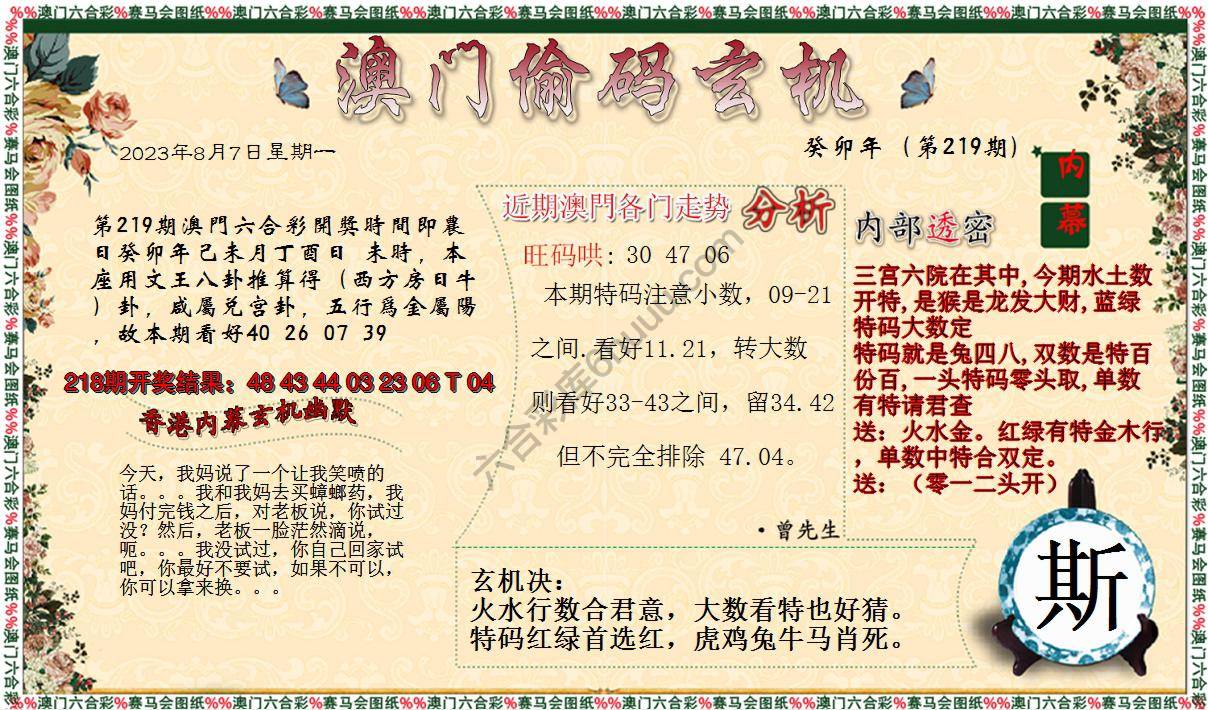 %%澳门六合彩%赛马会图纸%%澳门六合彩%赛马会图纸%%澳门六合彩%赛马会图纸%%澳门六合彩%赛马会图纸%%澳门六合彩%赛马会图纸%%澳门六合彩%赛马会图纸
澳门偷码玄机
2023年8月7日星期一
癸卯年（第219期）
内幕
第219期澳門六合彩開獎時間即農
日癸卯年己未月丁酉日 未時，本
座用文王八卦推算得（西方房日牛
）卦，咸屬兑宫卦，五行爲金屬陽
，故本期看好40 26 07 39
218期开奖结果：48 43 44 03 23 06 T 04
香港内幕玄机幽默
今天，我妈说了一个让我笑喷的
话。。。我和我妈去买蟑螂药，我
妈付完钱之后，对老板说，你试过
没？然后，老板一脸茫然滴说，
呃。。。我没试过，你自己回家试
吧，你最好不要试，如果不可以，
你可以拿来换。。。
近期澳門各门走势 分析
旺码哄: 30 47 06
本期特码注意小数，09-21
之间.看好11.21，转大数
则看好33-43之间，留34.42
但不完全排除 47.04。
·曾先生
内部透密
三宫六院在其中,今期水土数
开特,是猴是龙发大财,蓝绿
特码大数定
特码就是兔四八,双数是特百
份百,一头特码零头取,单数
有特请君查
送：火水金。红绿有特金木行
，单数中特合双定。
送：（零一二头开）
玄机决：
火水行数合君意，大数看特也好猜。
特码红绿首选红，虎鸡兔牛马肖死。
斯
%%澳门六合彩%赛马会图纸%%澳门六合彩%赛马会图纸%%澳门六合彩%赛马会图纸%%澳门六合彩%赛马会图纸%%澳门六合彩%赛马会图纸%%澳门六合彩%赛马会图纸